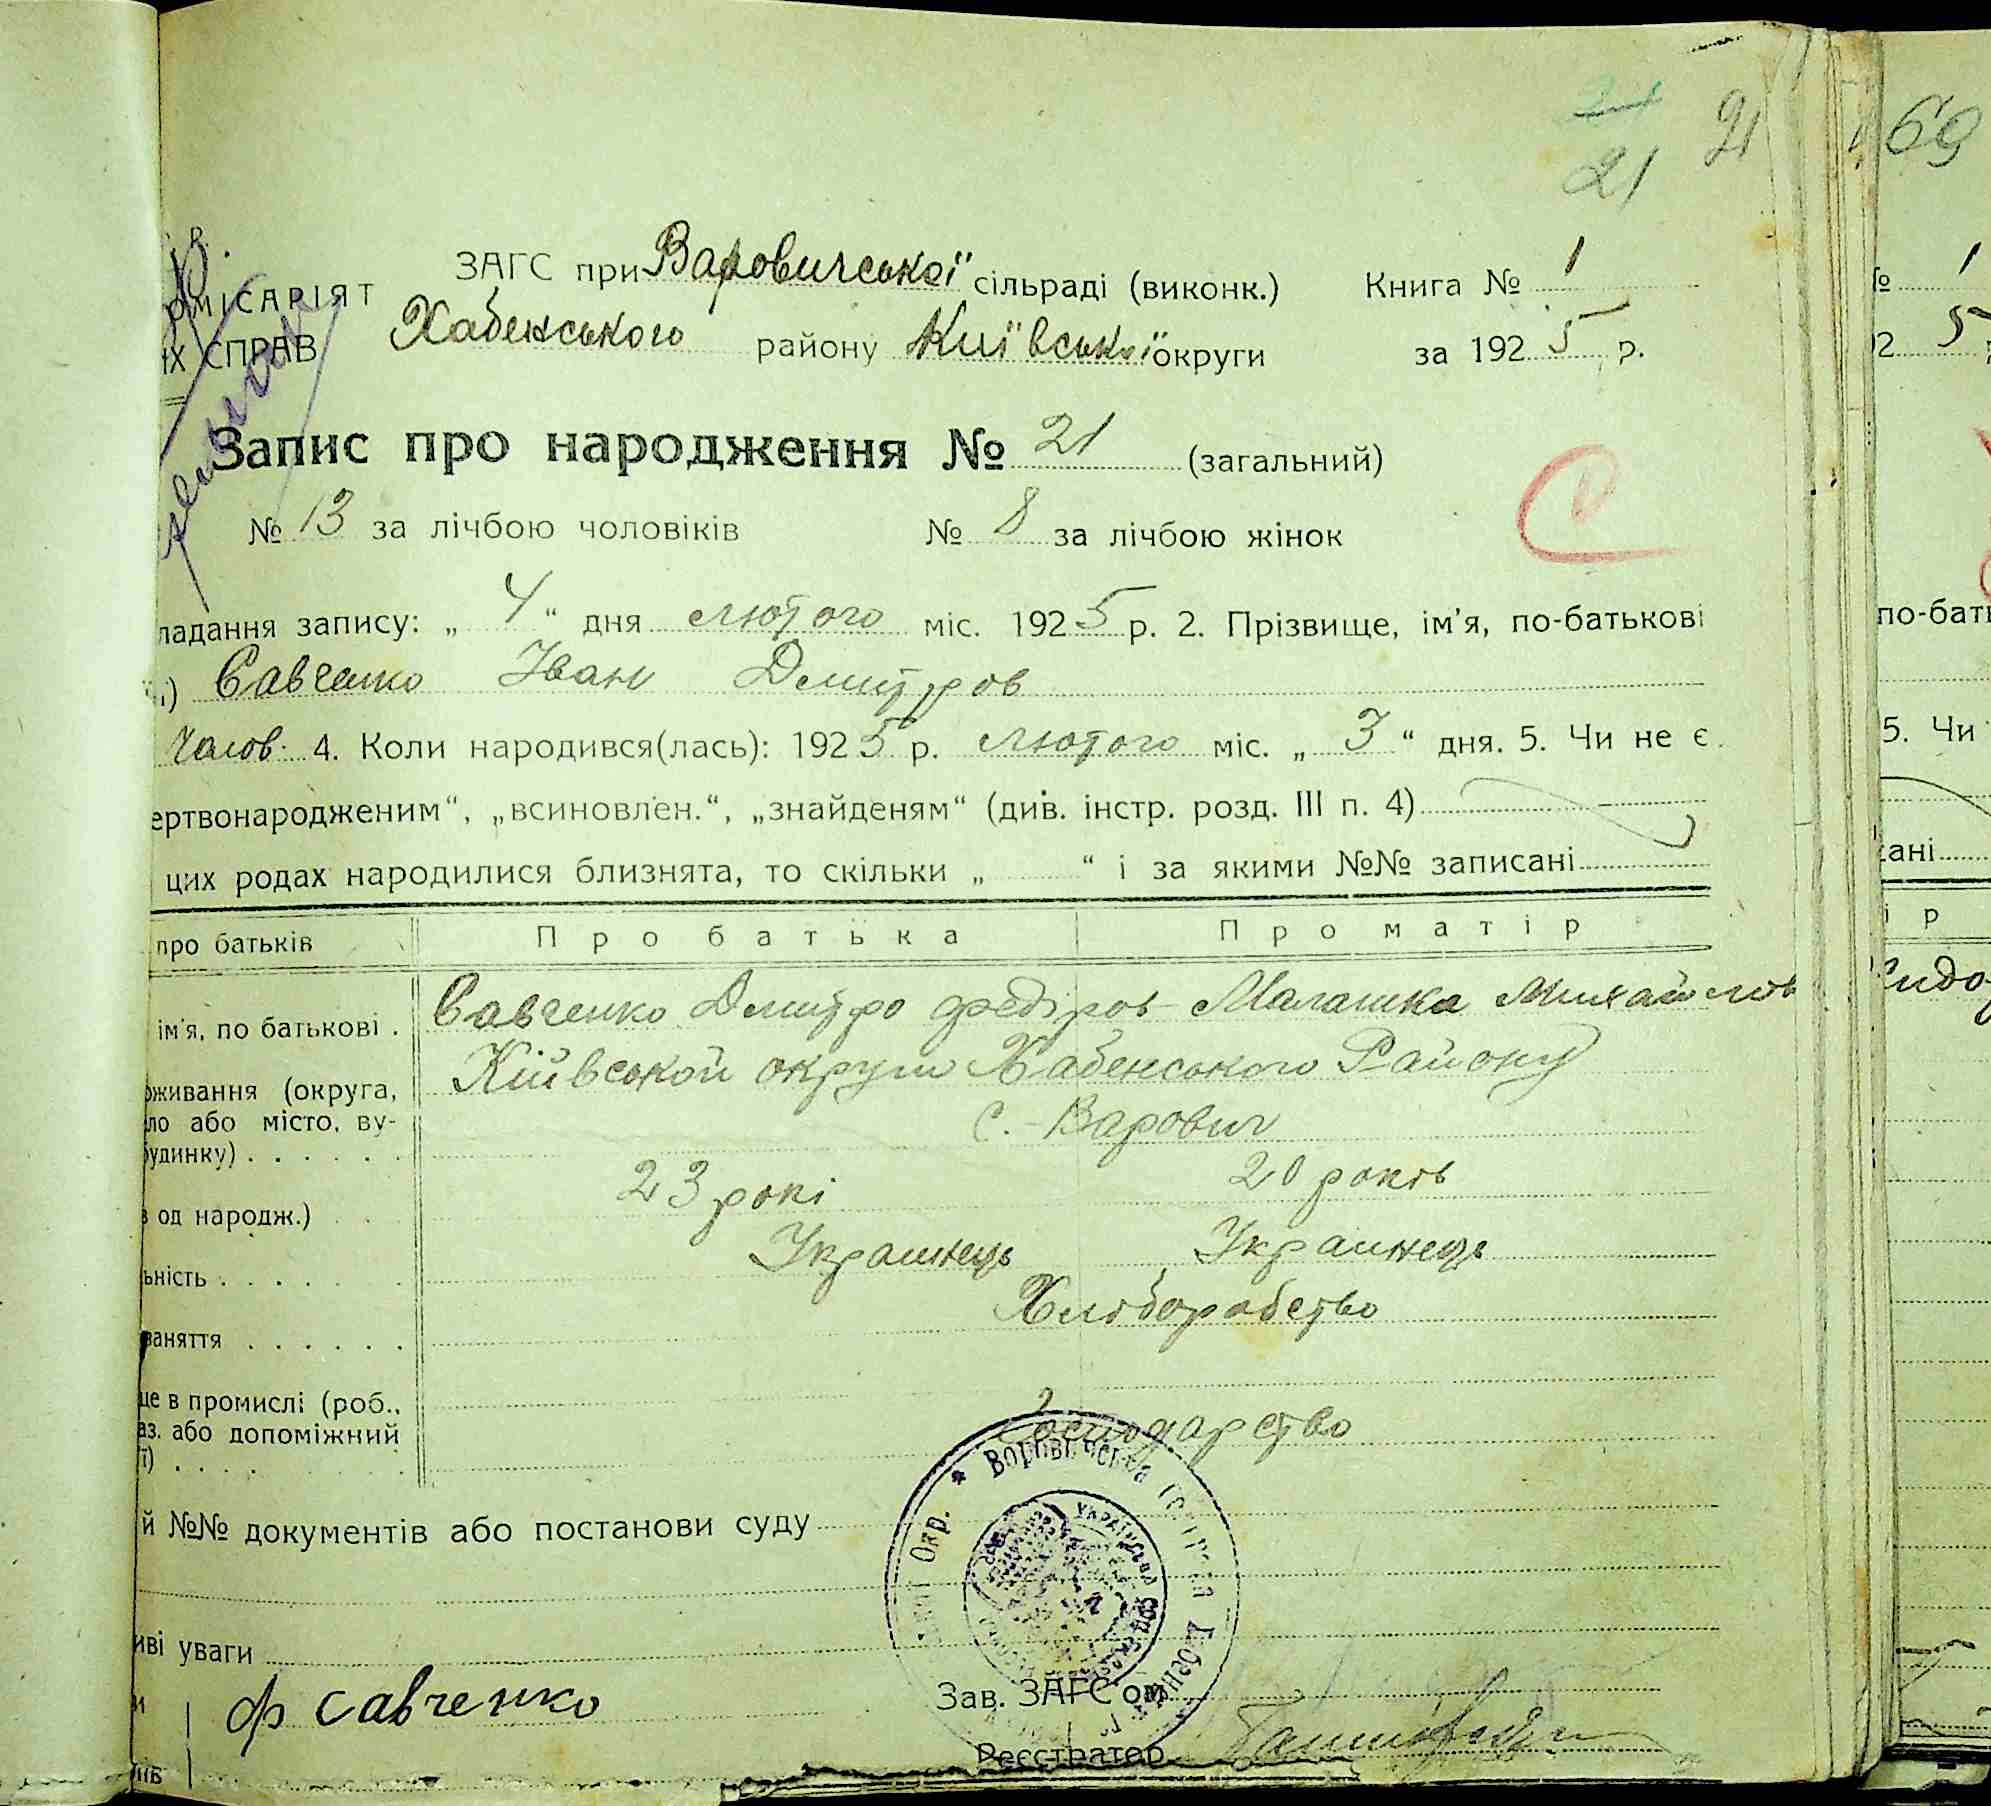 21 21 69
ЗАГС при Варовичської сільраді (виконк.) Книга № 1
ОМІСАРІЯТ
Хабенського району Київської округи за 1925 р.
ИХ СПРАВ
Запис про народження № 21 (загальний)
№ 13 за лічбою чоловіків № 8 за лічбою жінок
ладання запису: „ 4 “ дня лютого міс. 1925 р. 2. Прізвище, ім'я, по-батькові
Савченко Іван Дмитров
Чолов. 4. Коли народився(лась): 1925 р. лютого міс. „ 3 “ дня. 5. Чи не є
ертвонародженим“, „всиновлен.“, „знайденям“ (див. інстр. розд. III п. 4)
цих родах народилися близнята, то скільки „ “ і за якими №№ записані
про батьків Про батька Про матір
ім'я, по батькові . Савченко Дмитро Федіров Малашка Михайлов
оживання (округа, Київськой округи Хабенського Району
ло або місто, ву- с. Варович
удинку) . . . . . .
в од народж.) . . 23 рокі 20 років
ьність . . . . . . Украинець Украинець
заняття . . . . . . Хліборобство
це в промислі (роб.,
аз. або допоміжний Господарство
ї) . . . .
й №№ документів або постанови суду
иві уваги
Ф Савченко Зав. ЗАГС'ом
Реєстратор